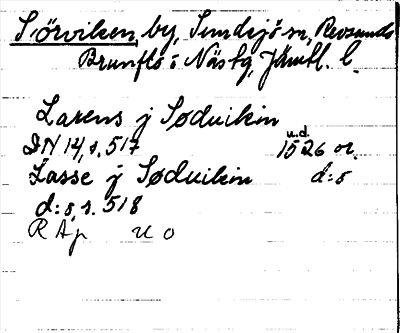 Sörviken, by, Sundsjö sn, Revsunds
Brunflo o Näs tg, Jämtl. l.
Larens j Søduikin
DN 14, s. 517 u.d. 1526 or.
Lasse j Søduikin d:o
d:o, s. 518
R Ap U O